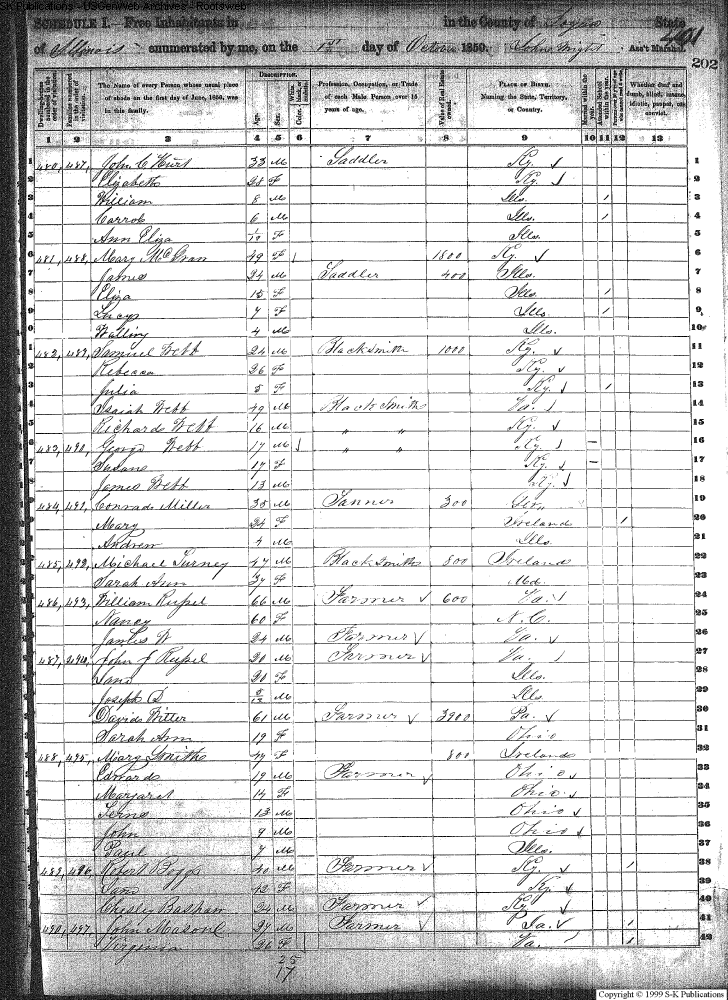 S-K Publications - USGenWeb Archives - Rootsweb
SCHEDULE I.—Free Inhabitants in in the County of State
of Illinois enumerated by me, on the 1st day of 1850. John Wright Ass't Marshal.
202
The Name of every Person whose usual place of abode on the first day of June, 1850, was in this family.
DESCRIPTION.
Age. Sex.
Profession, Occupation, or Trade of each Male Person over 15 years of age.
Value of Real Estate owned.
PLACE OF BIRTH. Naming the State, Territory, or Country.
Whether deaf and dumb, blind, insane, idiotic, pauper, or convict.
1 2 3 4 5 6 7 8 9 10 11 12 13
1 480, 487, John C Hurt 33 M Saddler Ky. 1
2 Elizabeth 28 F Ky. 2
3 William 8 M Ills. 3
4 6 M Ills. 4
5 Ann Eliza F Ills. 5
6 481, 488, Mary 49 F 1800 Ky. 6
7 James 24 M Saddler 400 Ills. 7
8 Eliza 15 F Ills. 8
9 Lucy 7 F Ills. 9
10 4 M Ills. 10
11 482, 489, Samuel Webb 24 M Blacksmith 1000 Ky. 11
12 Rebecca 26 F Ky. 12
13 Julia 5 F Ky. 13
14 Isaiah Webb 49 M Black Smith Va. 14
15 Richard Webb 16 M " " Ky. 15
16 483, 490, George Webb 17 M " " Ky. 16
17 Susan 17 F Ky. 17
18 James Webb 13 M Ky. 18
19 484, 491, Conrad Miller 35 M Tanner 300 Ger. 19
20 Mary 24 F Ireland 20
21 Andrew 4 M Ills. 21
22 485, 492, Michael Turney 47 M Black Smith 800 Ireland 22
23 Sarah Ann 37 F Md. 23
24 486, 493, William 66 M Farmer 600 Va. 24
25 Nancy 60 F N.C. 25
26 James W 24 M Farmer Va. 26
27 487, 494, John J 30 M Farmer Va. 27
28 Jane 20 F Ills. 28
29 Joseph D M Ills. 29
30 David Witter 61 M Farmer 3900 Pa. 30
31 Sarah Ann 19 F Ohio 31
32 488, 495, Mary Smith 47 F 800 Ireland 32
33 Edward 19 M Farmer Ohio 33
34 Margaret 14 F Ohio 34
35 13 M Ohio 35
36 John 9 M Ohio 36
37 Paul 7 M Ills. 37
38 489, 496, Robert Boggs 40 M Farmer Ky. 38
39 Jane 42 F Ky. 39
40 Chesley Basham 34 M Farmer Ky. 40
41 490, 497, John 27 M Farmer 41
42 Virginia 26 F Va. 42
25
17
Copyright © 1999 S-K Publications